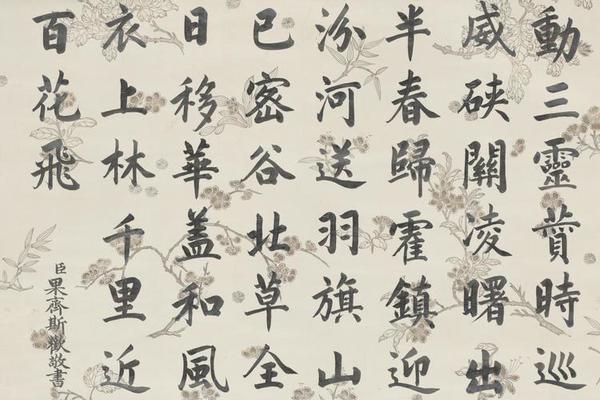 動三靈贊時巡
威硤關凌曙出
半春歸霍鎮迎
汾河送羽旗山
已密谷北草全
日移華蓋和風
衣上林千里近
百花飛
臣果齊斯歡敬書